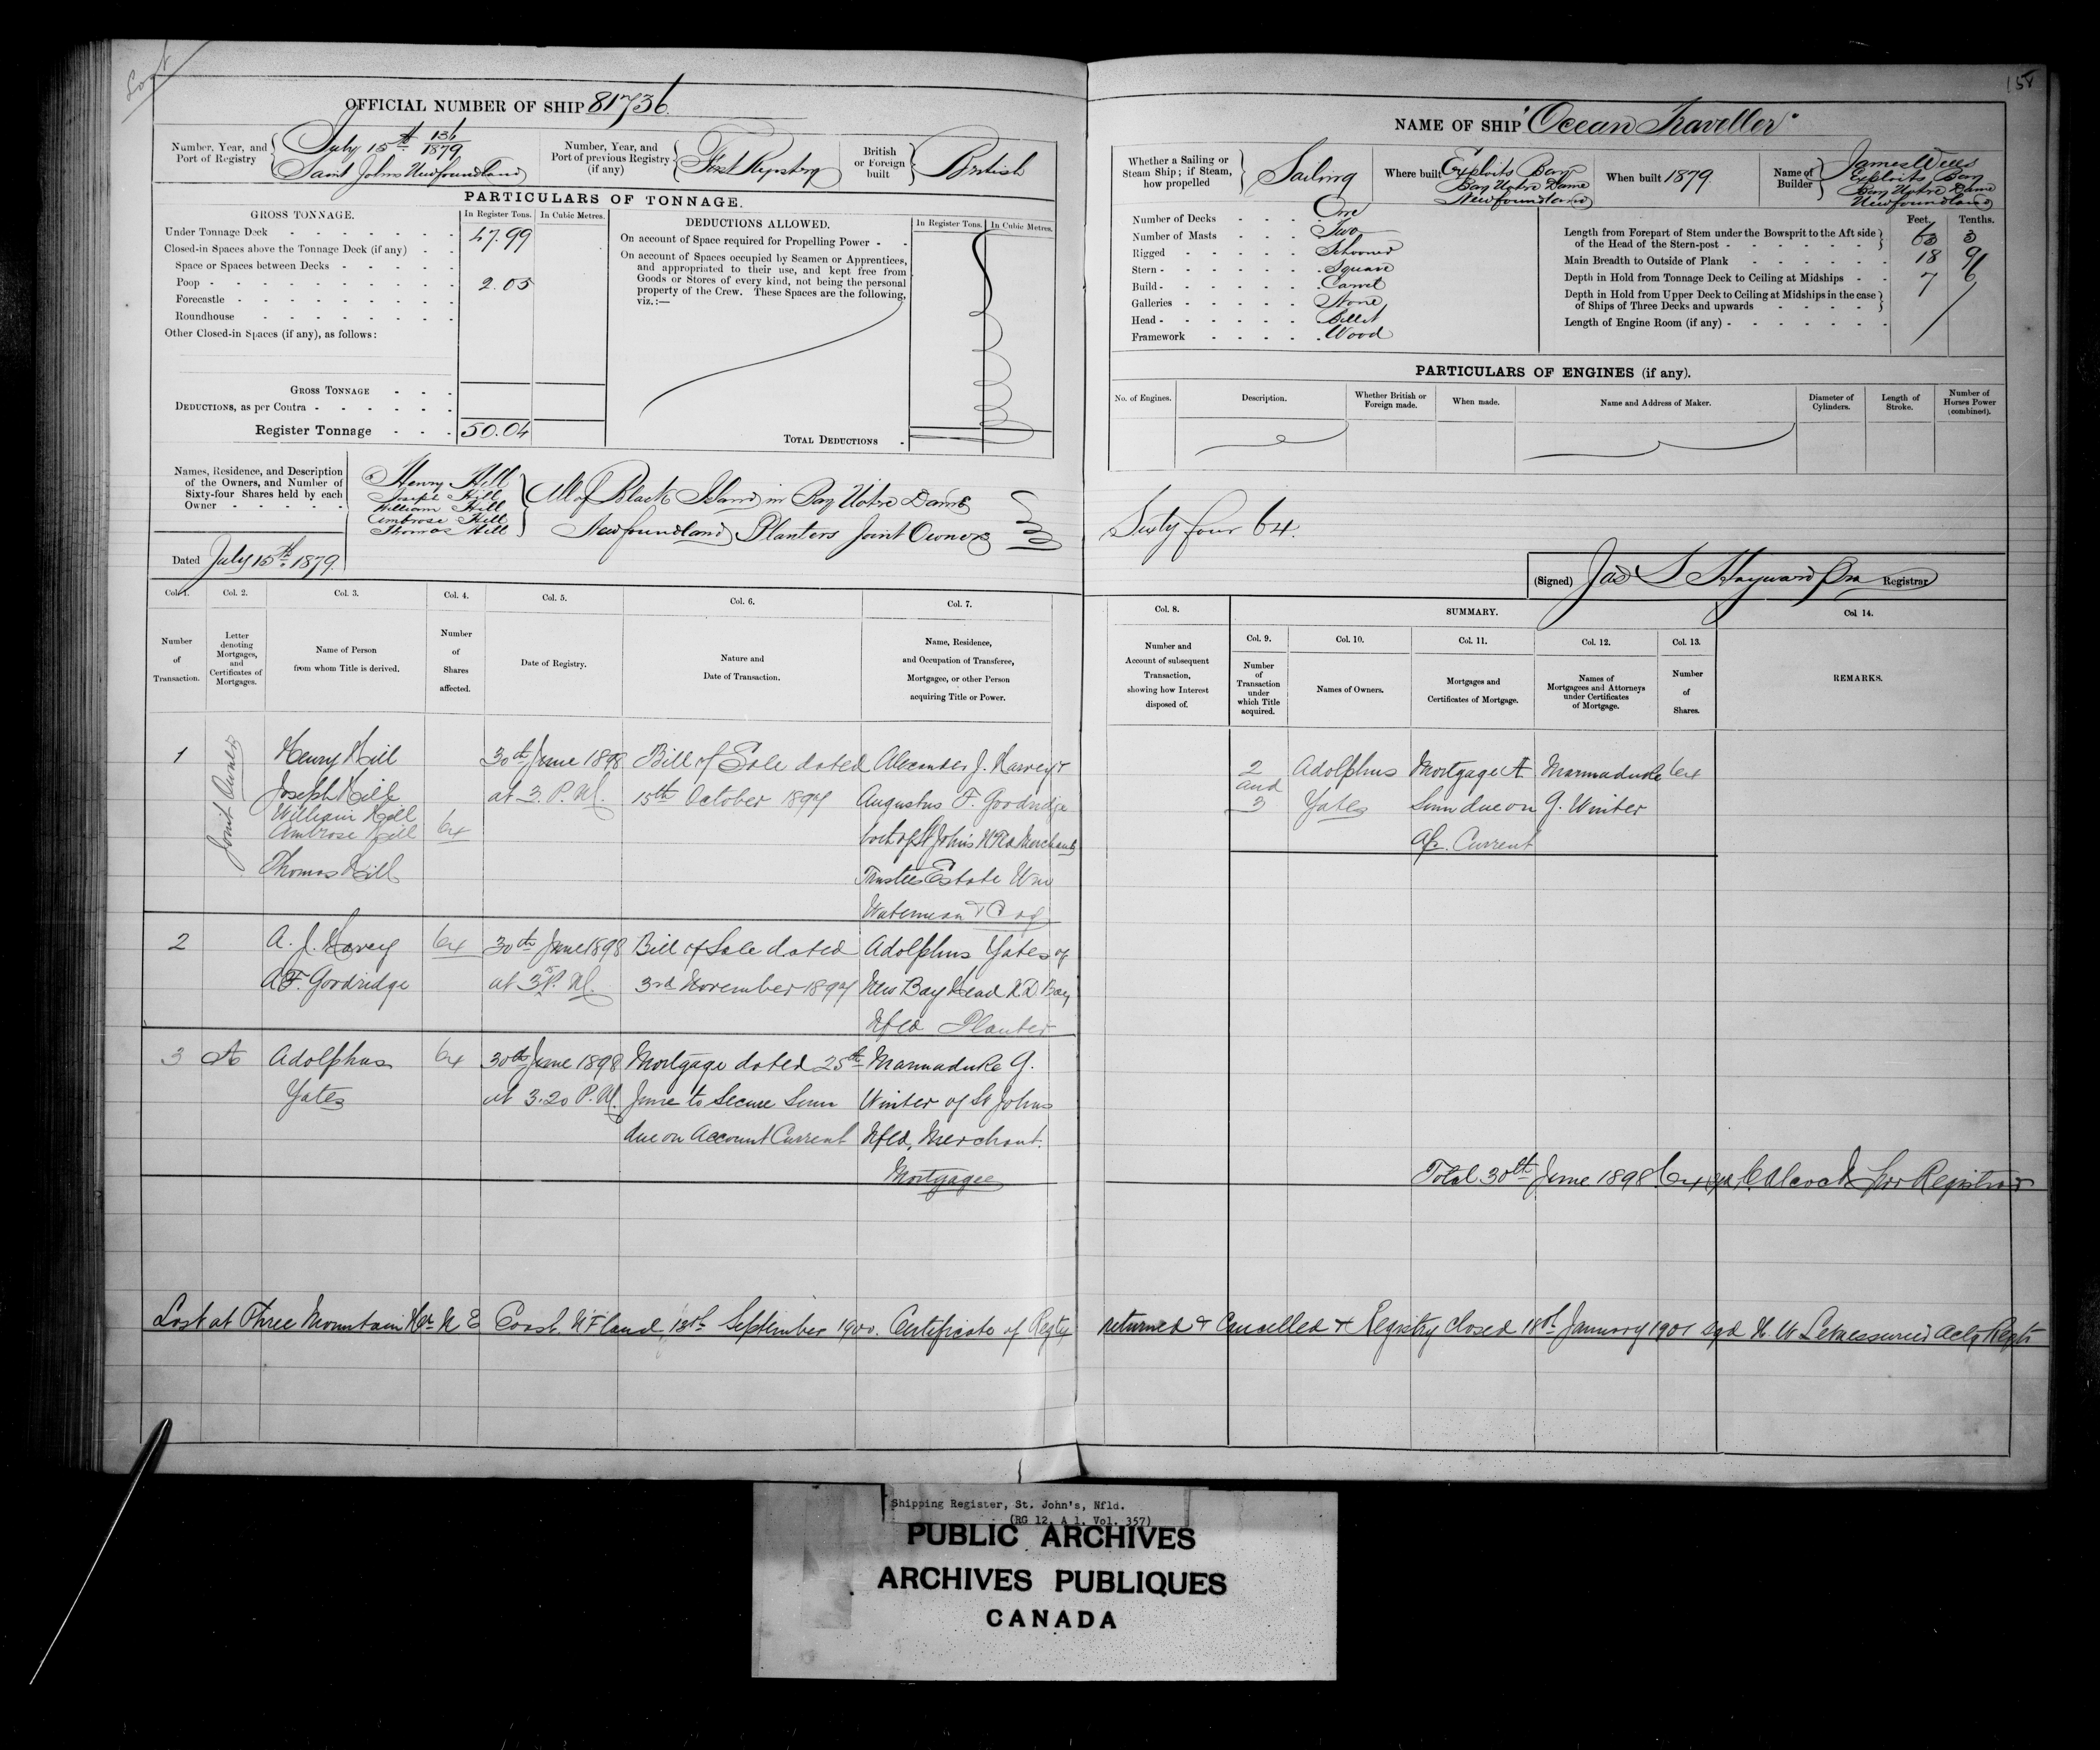 Lost
OFFICIAL NUMBER OF SHIP 81736.
Number, Year, and Port of Registry
July 15th 136/1879
Saint Johns Newfoundland
Number, Year, and Port of previous Registry (if any)
First Registry
British or Foreign built
British
PARTICULARS OF TONNAGE.
GROSS TONNAGE.
In Register Tons.
In Cubic Metres.
Under Tonnage Deck 47.99
Closed-in Spaces above the Tonnage Deck (if any)
Space or Spaces between Decks
Poop 2.05
Forecastle
Roundhouse
Other Closed-in Spaces (if any), as follows:
GROSS TONNAGE
DEDUCTIONS, as per Contra
Register Tonnage 50.04
DEDUCTIONS ALLOWED.
In Register Tons.
In Cubic Metres.
On account of Space required for Propelling Power
On account of Spaces occupied by Seamen or Apprentices,
and appropriated to their use, and kept free from
Goods or Stores of every kind, not being the personal
property of the Crew. These Spaces are the following,
viz.:—
TOTAL DEDUCTIONS
Names, Residence, and Description
of the Owners, and Number of
Sixty-four Shares held by each
Owner
Henry Hill
Joseph Hill
William Hill
Ambrose Hill
Thomas Hill
All of Black Island in Bay Notre Dame
Newfoundland Planters Joint Owners
Dated July 15th 1879.
151
NAME OF SHIP "Ocean Traveller"
Whether a Sailing or Steam Ship; if Steam, how propelled
Sailing
Where built
Exploits Bay
Bay Notre Dame
Newfoundland
When built 1879.
Name of Builder
James Wells
Exploits Bay
Bay Notre Dame
Newfoundland
Number of Decks One
Number of Masts Two
Rigged Schooner
Stern Square
Build Carvel
Galleries None
Head Billet
Framework Wood
Feet. Tenths.
Length from Forepart of Stem under the Bowsprit to the Aft side
of the Head of the Stern-post 63 3
Main Breadth to Outside of Plank 18 9
Depth in Hold from Tonnage Deck to Ceiling at Midships 7 6
Depth in Hold from Upper Deck to Ceiling at Midships in the case
of Ships of Three Decks and upwards
Length of Engine Room (if any)
PARTICULARS OF ENGINES (if any).
No. of Engines.
Description.
Whether British or Foreign made.
When made.
Name and Address of Maker.
Diameter of Cylinders.
Length of Stroke.
Number of Horses Power (combined).
Sixty four 64.
(Signed) Jas S Hayward Registrar
Col. 1. Col. 2. Col. 3. Col. 4. Col. 5. Col. 6. Col. 7.
Number of Transaction.
Letter denoting Mortgages, and Certificates of Mortgages.
Name of Person from whom Title is derived.
Number of Shares affected.
Date of Registry.
Nature and Date of Transaction.
Name, Residence, and Occupation of Transferee, Mortgagee, or other Person acquiring Title or Power.
Col. 8.
Number and Account of subsequent Transaction, showing how Interest disposed of.
SUMMARY.
Col. 9. Col. 10. Col. 11. Col. 12. Col. 13.
Number of Transaction under which Title acquired.
Names of Owners.
Mortgages and Certificates of Mortgage.
Names of Mortgagees and Attorneys under Certificates of Mortgage.
Number of Shares.
Col 14.
REMARKS.
1
Joint Owners
Henry Hill
Joseph Hill
William Hill
Ambrose Hill
Thomas Hill
64
30th June 1898
at 3. P.M.
Bill of Sale dated
15th October 1897
Alexander J. Harvey &
Augustus F. Goodridge
both of St Johns Nfld Merchants
Trustees Estate Wm
Waterman & Co
2
A. J. Harvey
A F. Goodridge
64
30th June 1898
at 3.5 P.M.
Bill of Sale dated
3rd November 1897
Adolphus Yates of
New Bay Head N.D. Bay
Nfld Planter
3 A
Adolphus
Yates
64
30th June 1898
at 3.20 P.M.
Mortgage dated 25th
June to Secure Sum
due on Account Current
Marmaduke G.
Winter of St Johns
Nfld, Merchant.
Mortgagee
2
and
3
Adolphus
Yates
Mortgage A
Sum due on
A/c. Current
Marmaduke
G. Winter
64
Total 30th June 1898 64 Registrar
Lost at Three Mountain Hr. N E Coast. N'F'land, 13th September 1900. Certificate of Regty returned & Cancelled & Registry closed 18th January 1901 Sgd H. W LeMessurier Actg Regtr
Shipping Register, St. John's, Nfld.
(RG 12, A 1, Vol. 357)
PUBLIC ARCHIVES
ARCHIVES PUBLIQUES
CANADA